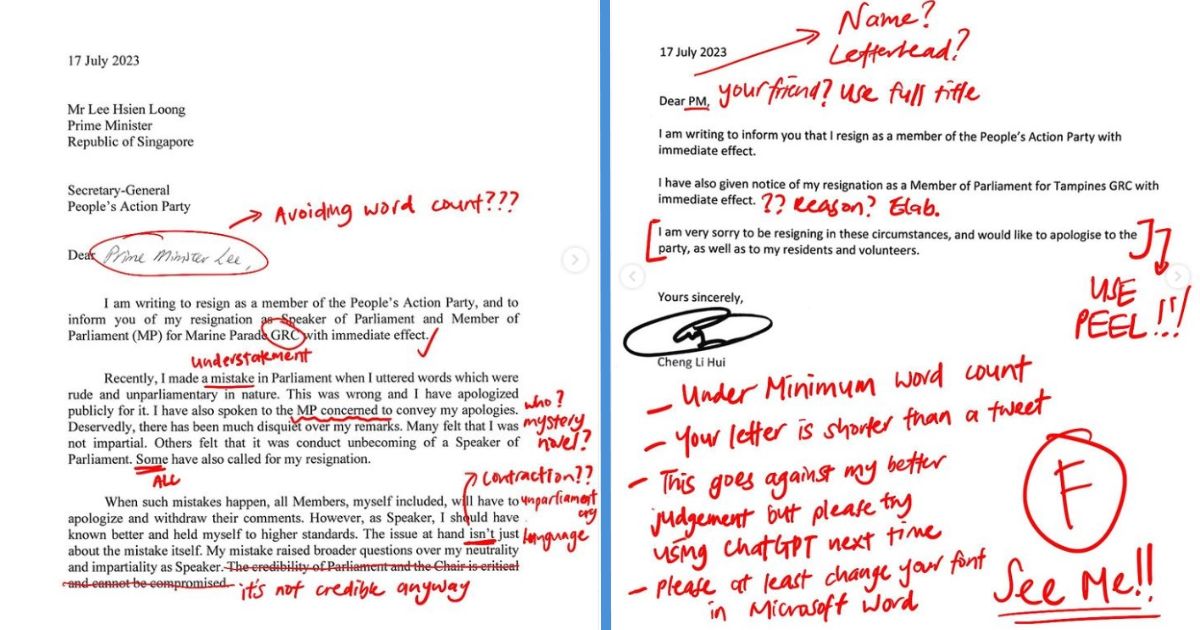 17 July 2023
Mr Lee Hsien Loong
Prime Minister
Republic of Singapore
Secretary-General
People's Action Party
Avoiding word count???
Dear Prime Minister Lee,
I am writing to resign as a member of the People's Action Party, and to
inform you of my resignation as Speaker of Parliament and Member of
Parliament (MP) for Marine Parade GRC with immediate effect.
understatement
Recently, I made a mistake in Parliament when I uttered words which were
rude and unparliamentary in nature. This was wrong and I have apologized
publicly for it. I have also spoken to the MP concerned to convey my apologies.
who?
mystery
novel?
Deservedly, there has been much disquiet over my remarks. Many felt that I was
not impartial. Others felt that it was conduct unbecoming of a Speaker of
Parliament. Some have also called for my resignation.
ALL
contraction??
unparliament
ary
language
When such mistakes happen, all Members, myself included, will have to
apologize and withdraw their comments. However, as Speaker, I should have
known better and held myself to higher standards. The issue at hand isn't just
about the mistake itself. My mistake raised broader questions over my neutrality
and impartiality as Speaker. The credibility of Parliament and the Chair is critical
and cannot be compromised.
it's not credible anyway
Name?
Letterhead?
17 July 2023
Dear PM,
your friend? Use full title
I am writing to inform you that I resign as a member of the People's Action Party with
immediate effect.
I have also given notice of my resignation as a Member of Parliament for Tampines GRC with
immediate effect.
?? Reason? Elab.
I am very sorry to be resigning in these circumstances, and would like to apologise to the
party, as well as to my residents and volunteers.
USE
PEEL!!!
Yours sincerely,
Cheng Li Hui
- Under Minimum word count
- Your letter is shorter than a tweet
- This goes against my better
judgement but please try
using ChatGPT next time
- Please at least change your font
in Microsoft Word
F
See Me!!